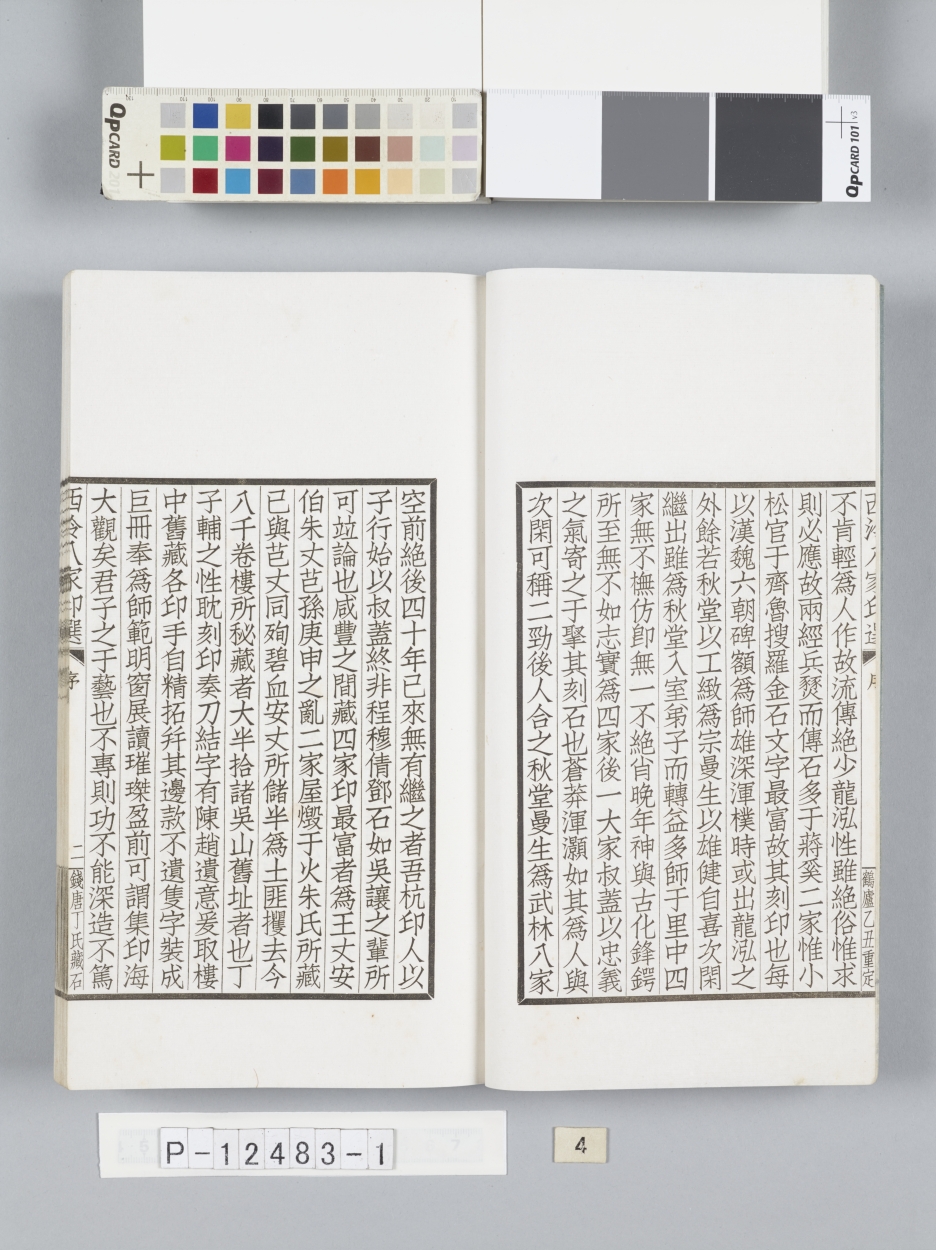 QPCARD 201
QPCARD 101 v3
西泠八家印選
序
鶴廬乙丑重定
不肯輕爲人作故流傳絕少龍泓性雖絕俗惟求
則必應故兩經兵燹而傳石多于蔣奚二家惟小
松官于齊魯搜羅金石文字最富故其刻印也每
以漢魏六朝碑額爲師雄深渾樸時或出龍泓之
外餘若秋堂以工緻爲宗曼生以雄健自喜次閑
繼出雖爲秋堂入室弟子而轉益多師于里中四
家無不橅仿卽無一不絕肖晚年神與古化鋒鍔
所至無不如志實爲四家後一大家叔蓋以忠義
之氣寄之于掔其刻石也蒼莽渾灝如其爲人與
次閑可稱二勁後人合之秋堂曼生爲武林八家
空前絕後四十年已來無有繼之者吾杭印人以
子行始以叔蓋終非程穆倩鄧石如吳讓之輩所
可竝論也咸豐之間藏四家印最富者爲王丈安
伯朱丈芑孫庚申之亂二家屋燬于火朱氏所藏
已與芑丈同殉碧血安丈所儲半爲土匪攫去今
八千卷樓所秘藏者大半拾諸吳山舊址者也丁
子輔之性耽刻印奏刀結字有陳趙遺意爰取樓
中舊藏各印手自精拓幷其邊款不遺隻字裝成
巨冊奉爲師範明窗展讀璀璨盈前可謂集印海
大觀矣君子之于藝也不專則功不能深造不篤
西泠八家印選
序
二
錢唐丁氏藏石
P-12483-1
4